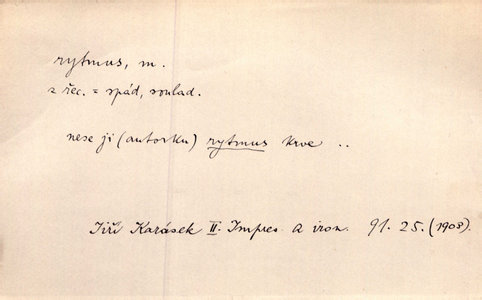 rytmus, m.
z řec. = spád, soulad.
nese ji (autorku) rytmus krve ..
Jiří Karásek II. Impres. a iron. 91. 25. (1903).